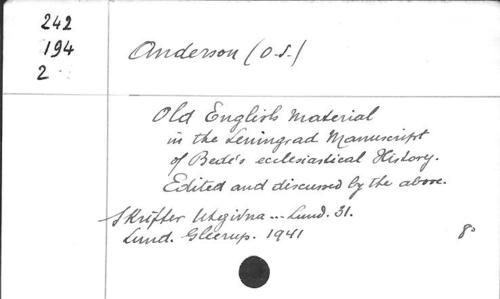 242
194
2
Anderson (O.S.)
Old English Material
in the Leningrad Manuscript
of Bede's ecclesiastical History.
Edited and discussed by the above.
Skrifter Utgivna ... Lund. 31.
Lund. Gleerup. 1941
8º